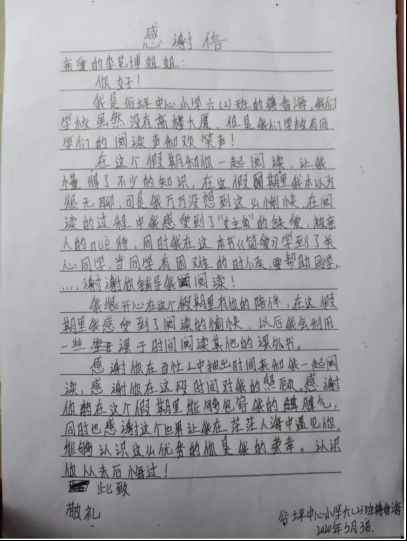 感谢信
亲爱的李艺博姐姐:
你好!
我是台坪中心小学六(2)班的 海,我们
学校虽然没有高楼大厦,但是我们学校有同
学们的阅读声和欢笑声!
在这个假期和你一起阅读,让我
懂得了不少的知识,在这假期里我本以为
很无聊,可是我万万没想到这么愉快,在阅
读的过程中我感受到了“女主角”的 ,被亲
人的nuè待,同时我在这本书《简爱》学到了关
心同学,当同学有困难的时候,要帮助同学。
...,谢谢你辅导我阅读!
我很开心在这个假期里有你的陪伴,在这假
期里我感受到了阅读的愉快,以后我会利用
一些课于时间阅读其他的课外书。
感谢你在百忙之中抽出时间来和我一起阅
读,感谢你在这段时间对我的照顾。感谢
你在这个假期里能够包容我的脾气,
同时也感谢这个世界让我在茫茫人海中遇见你。
能够认识这么优秀的你是我的荣幸。认识
你从未后悔过!
此致
敬礼
台坪中心小学六(2)班 海
2020年3月3日